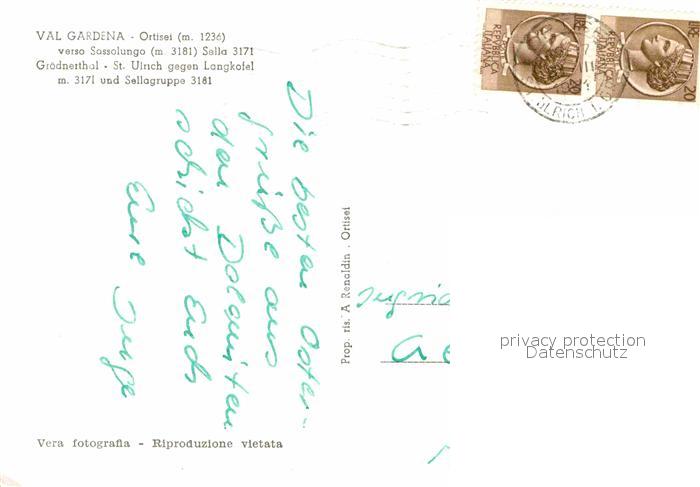 VAL GARDENA - Ortisei (m. 1236)
verso Sassolungo (m. 3181) Sella 3171
Grödnerthal - St. Ulrich gegen Langkofel
m. 3171 und Sellagruppe 3181
Die besten Oster-
grüße aus
den Dolomiten
schickt Euch
Eure Inge
Prop. ris. A Renoldin . Ortisei
Vera fotografia - Riproduzione vietata
LIRE 20
REPUBBLICA
ITALIANA
LIRE 20
REPUBBLICA
ITALIANA
ULRICH I. G.
privacy protection
Datenschutz